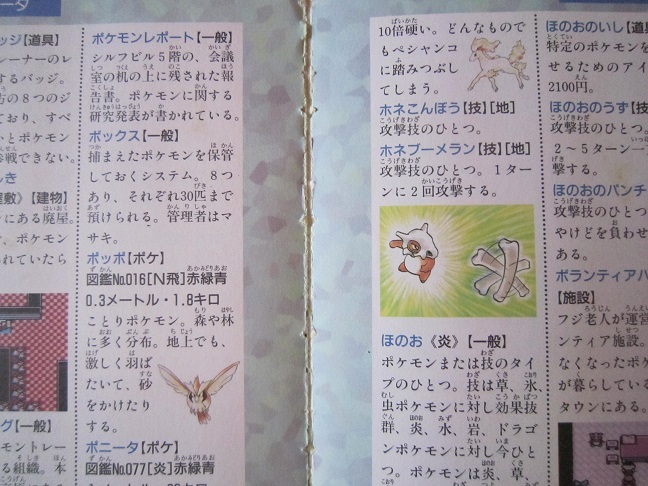 ータ
ッジ【道具】
レーナーのレ
するバッジ。
方の8つのジ
ており、すべ
いとポケモン
参戦できない。
しき
屋敷》【建物】
ンにある廃屋。
、ポケモン
れていたら
グ【一般】
モントレー
る組織。本
ポケモンレポート【一般】
シルフビル5階の、会議
室の机の上に残された報
告書。ポケモンに関する
研究発表が書かれている。
ボックス【一般】
捕まえたポケモンを保管
しておくシステム。8つ
あり、それぞれ30匹まで
預けられる。管理者はマ
サキ。
ポッポ【ポケ】
図鑑No.016[N飛]赤緑青
0.3メートル・1.8キロ
ことりポケモン。森や林
に多く分布。地上でも、
激しく羽ば
たいて、砂
をかけたり
する。
ポニータ【ポケ】
図鑑No.077[炎]赤緑青
10倍硬い。どんなもので
もペシャンコ
に踏みつぶし
てしまう。
ホネこんぼう【技】【地】
攻撃技のひとつ。
ホネブーメラン【技】【地】
攻撃技のひとつ。1ターン
に2回攻撃する。
ほのお《炎》【一般】
ポケモンまたは技のタイ
プのひとつ。技は草、氷、
虫ポケモンに対し効果抜
群、炎、水、岩、ドラゴ
ンポケモンに対し今ひと
つ。ポケモンは炎、草、
ほのおのいし【道具】
特定のポケモンを
せるためのアイ
2100円。
ほのおのうず【技】
攻撃技のひとつ
2〜5ターン
撃する。
ほのおのパンチ
攻撃技のひとつ
やけどを負わせ
ある。
ボランティアハ
【施設】
フジ老人が運営
ンティア施設。
なくなったポケ
が暮らしている
タウンにある。